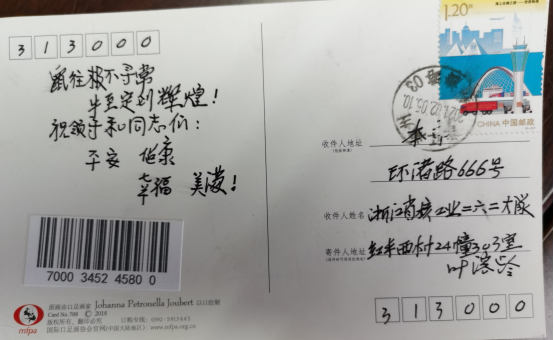 313000
鼠往极不寻常
牛至定到辉煌！
祝领导和同志们：
平安 
幸福 美满！
7000 3452 4580 0
mfpa
Johanna Petronella Joubert 以口绘制
Card No. 708 © 2018
版权所有，翻印必究 订购专线
国际口足画协会官网(中国大陆地区) www.mfpa.org.cn
1.20元
CHINA 中国邮政
2021.02.05.10
收件人地址
环渚路666号
收件人姓名 浙江省核工业二六二大队
寄件人地址 红丰西村24幢303室
313000